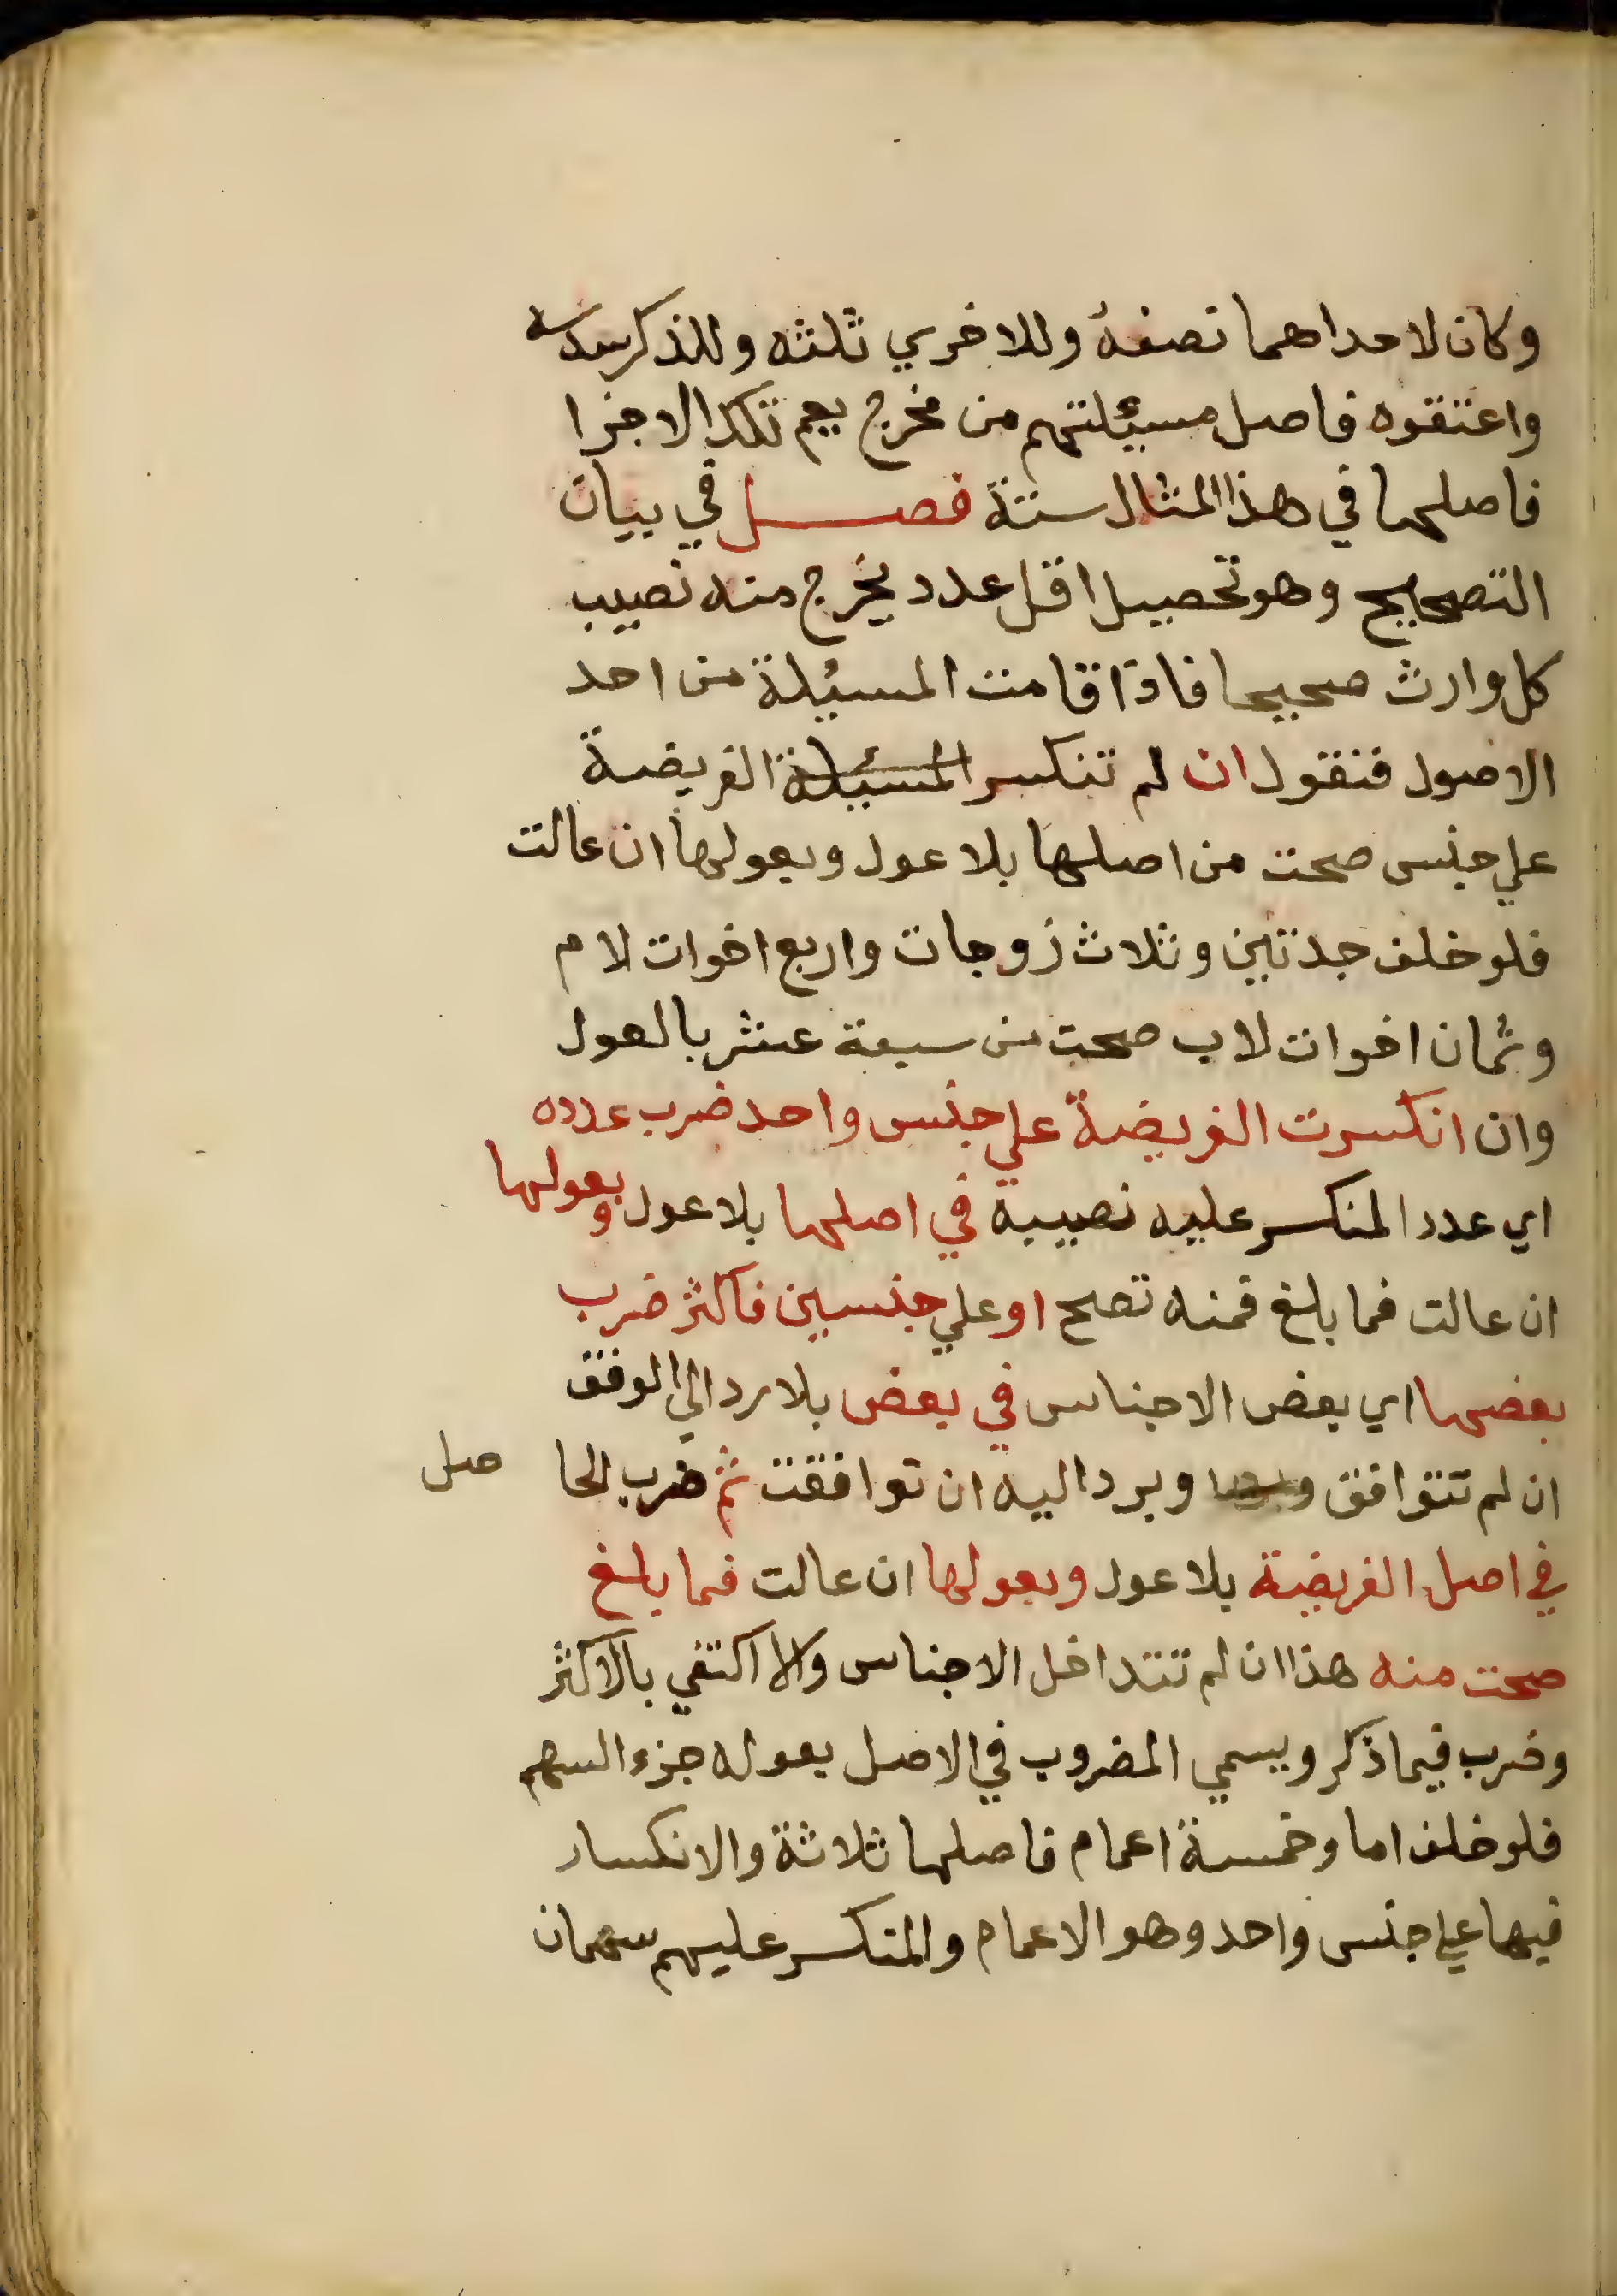 وكان لاحداهما نصفه وللاخري ثلثه وللذكر سدسه
واعتقوه فاصل مسئلتهم من مخرج يعم تلك الاجزا
فاصلها في هذا المثال ستة فصل في بيان
التصحيح وهو تحصيل اقل عدد يخرج منه نصيب
كل وارث صحيحا فاذا قامت المسئلة من احد
الاصول فنقول ان لم تنكسر المسئلة الفريضة
علي جنس صحت من اصلها بلا عول وبعولها ان عالت
فلو خلف جدتين وثلاث زوجات واربع اخوات لام
وثمان اخوات لاب صحت من سبعة عشر بالعول
وان انكسرت الفريضة علي جنس واحد ضرب عدده
اي عدد المنكسر عليه نصيبه في اصلها بلا عول وبعولها
ان عالت فما بلغ فمنه تصح او علي جنسين فاكثر ضرب
بعضها اي بعض الاجناس في بعض بلا رد الي الوفق
ان لم تتوافق وبرد اليه ان توافقت ثم ضرب الحا صل
في اصل الفريضة بلا عول وبعولها ان عالت فما بلغ
صحت منه هذا ان لم تتداخل الاجناس والا اكتفي بالاكثر
وضرب فيما ذكر ويسمي المضروب في الاصل بعوله جزء السهم
فلو خلف اما وخمسة اعمام فاصلها ثلاثة والانكسار
فيها علي جنس واحد وهو الاعمام والمنكسر عليهم سهمان